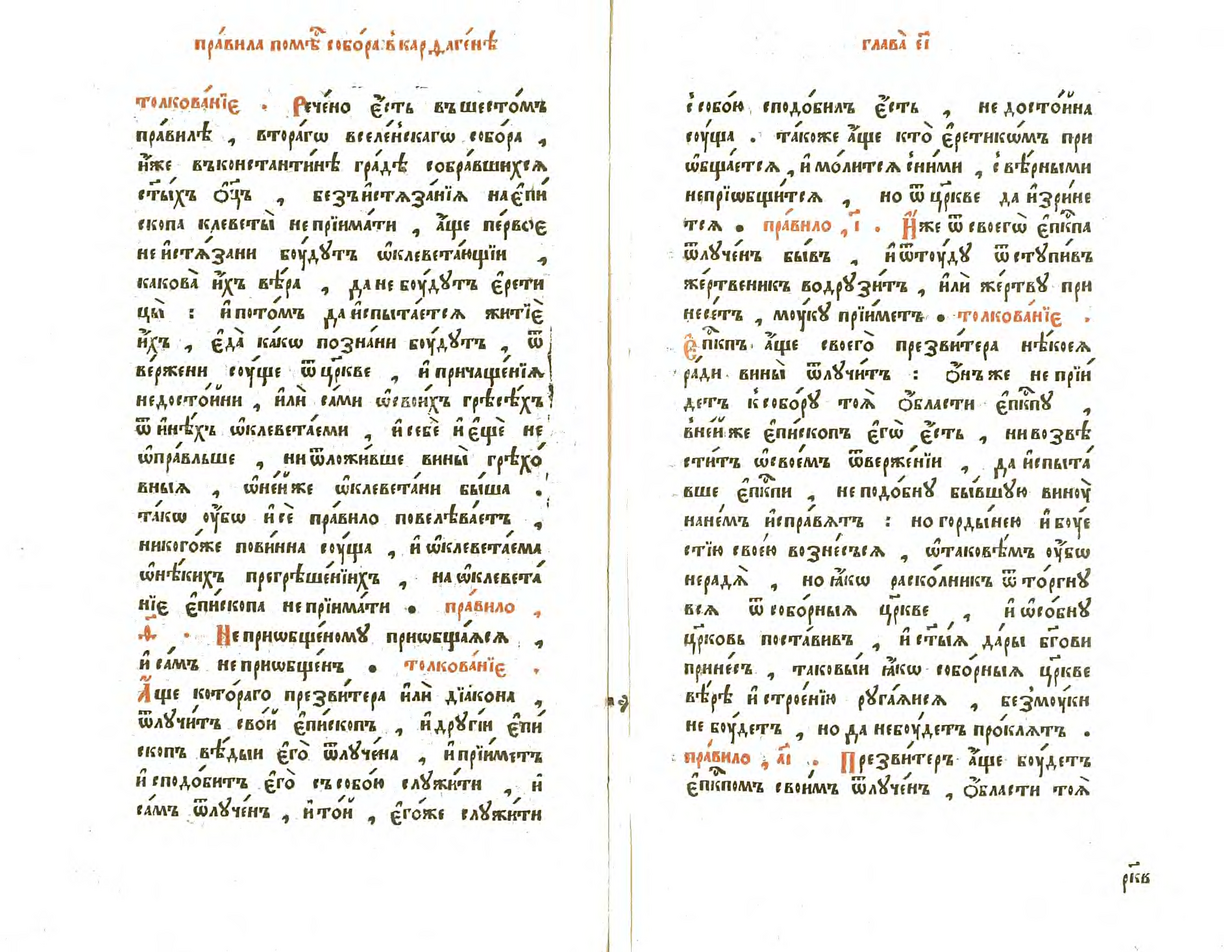 пра́вила помѣ́ст собо́ра в̾карѳаге́нѣ
толкова́нїе . Рече́но є҆́сть въшесто́мъ
пра́вилѣ , втора́гѡ вселе́нскагѡ собо́ра ,
и҆́же въконстанти́нѣ гра́дѣ собра́вшихсѧ
ст҃ы́хъ ѻ҆ц҃ъ , безъи҆стѧза́нїѧ нає҆пи́
скопа клеветы̀ непрїима́ти , а҆́ще пе́рвое
не и҆стѧ́зани боу́дутъ ѡ҆клевета́ющїи ,
какова̀ и҆́хъ вѣ́ра , данебоу́дутъ є҆рети
цы̀ : и҆пото́мъ даи҆спыта́етсѧ житїѐ
и҆́хъ , є҆да̀ ка́кѡ позна́ни боу́дутъ , ѿ
ве́ржени соу́ще ѿцр҃кве , и҆ причаще́нїѧ
недосто́йни , и҆лѝ са́ми ѡ҆свои́хъ грѣсѣ́хъ
ѿ и҆нѣ́хъ ѡ҆клевета́еми , и҆себѐ и҆є҆щѐ не
ѡ҆пра́вльше , ниѿложи́вше вины̀ грѣхо́
вныѧ , ѡ҆не́йже ѡ҆клевета́ни бы́ша .
та́кѡ оу҆́бѡ и҆сѐ пра́вило повелѣва́етъ ,
никого́же пови́нна соу́ща , и҆ ѡ҆клевета́ема
ѡ҆нѣ́кихъ прегрѣше́нїихъ , на ѡ҆клевета́
нїе є҆пи́скопа непрїима́ти . пра́вило ,
ѳ҃ . Неприѡбще́ному приѡбща́ѧсѧ ,
и҆ са́мъ неприѡбще́нъ . толкова́нїе .
А҆́ще кото́раго презви́тера и҆лѝ дїа́кона ,
ѿлучи́тъ сво́й є҆пи́скопъ , и҆ дру́гїи є҆пи́
скопъ вѣ́дыи є҆го̀ ѿлу́чена , и҆прїи́метъ
и҆ сподо́битъ є҆го̀ съсобо́ю служи́ти , и҆
са́мъ ѿлуче́нъ , и҆ то́й , є҆го́же служи́ти
глава̀ є҃і
с̾собо́ю сподо́билъ є҆́сть , не досто́йна
соу́ща . та́коже а҆́ще кто̀ є҆ретикѡ́мъ при
ѡ҆бща́етсѧ , и҆ мо́литсѧ с̾ни́ми , с̾вѣ́рными
непрїѡбщи́тсѧ , но ѿ цр҃кве да и҆зри́не
тсѧ . пра́вило , і҃ . И҆́же ѿ своегѡ̀ є҆пкⷭ҇па
ѿлуче́н бы́въ , и҆ѿтоу́ду ѿступи́въ
же́ртвеникъ водрузи́тъ , и҆лѝ же́ртву при
несе́тъ , моу́ку прїи́метъ . толкова́нїе .
Є҆пкⷭ҇пъ а҆́ще своего̀ презви́тера нѣ́коеѧ
ра́ди вины̀ ѿлучи́тъ : ѻ҆́нъже не прїи́
детъ к̾собо́ру тоѧ̀ ѻ҆́бласти є҆пкⷭ҇пу ,
в̾не́йже є҆пи́скопъ є҆гѡ̀ є҆́сть , нивозвѣ
сти́тъ ѡ҆свое́мъ ѿверже́нїи , да и҆спыта́
вше є҆пкⷭ҇пи , неподо́бну бы́вшую виноу̀
нане́мъ и҆спра́вѧтъ : но горды́нею и҆ боу́е
стїю свое́ю вознесъ́сѧ , ѡ҆таковѣ́мъ оу҆́бѡ
нерадѧ̀ , но ꙗ҆́кѡ раско́лникъ ѿ то́ргну
всѧ ѿ собо́рныѧ цр҃кве , и҆ ѡ҆со́бну
цр҃ковь поста́вивъ , и҆ ст҃ы́ѧ да́ры бг҃ови
прине́съ , таковы́и ꙗ҆́кѡ собо́рныѧ цр҃кве
вѣ́рѣ и҆ строе́нїю руга́ѧисѧ , безмоу́ки
не боу́детъ , но да небоу́детъ про́клѧтъ .
пра́вило , а҃і . Презви́теръ а҆́ще боу́детъ
є҆пкⷭ҇помъ свои́мъ ѿлуче́нъ , ѻ҆́бласти тоѧ̀
рк҃в